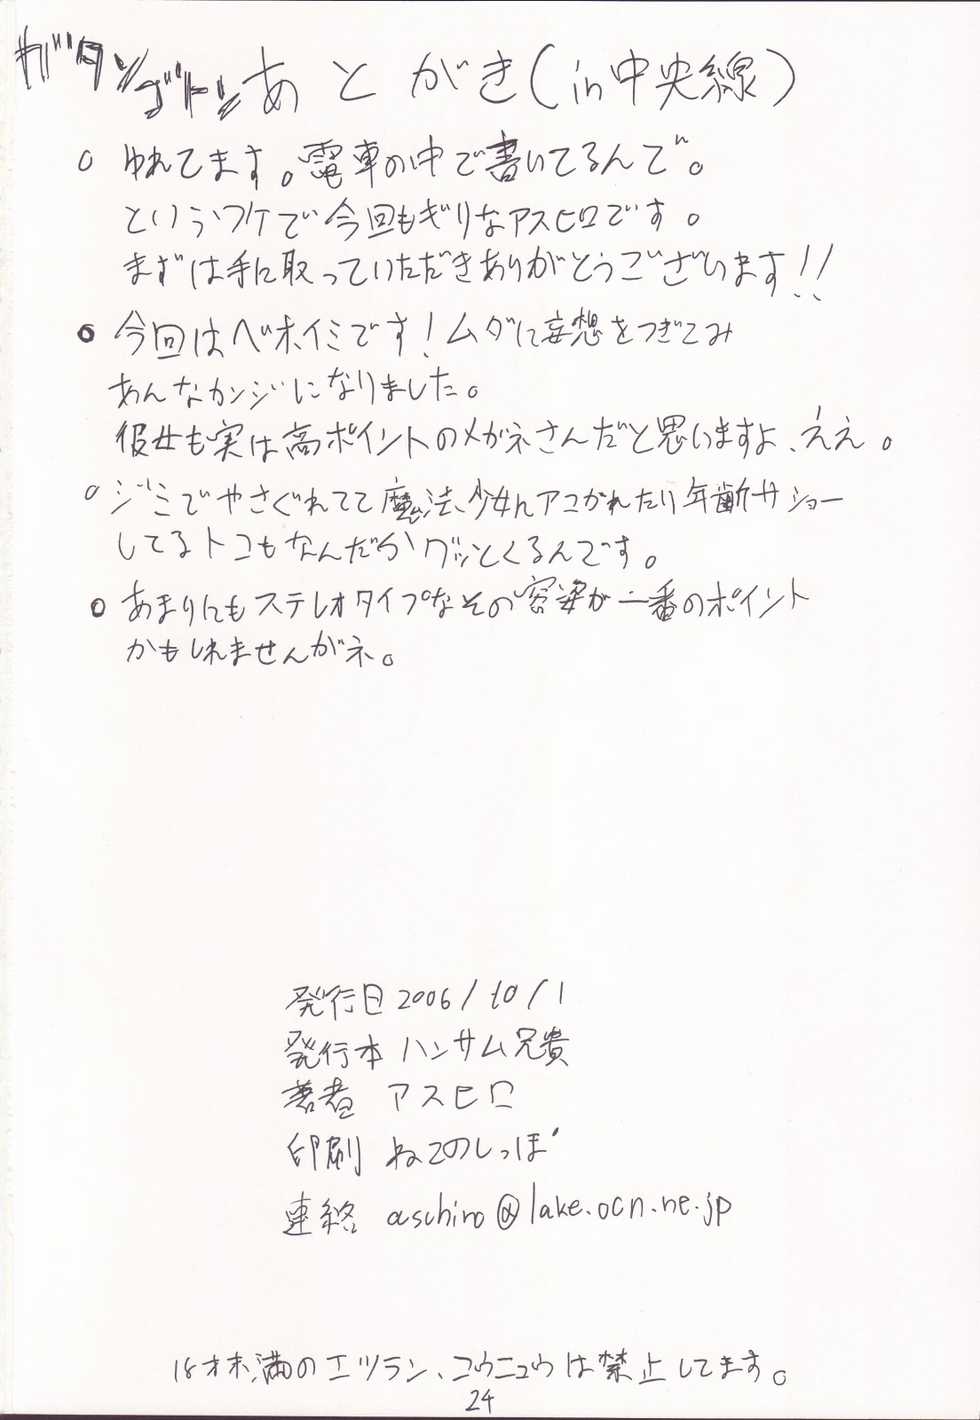 ガタンゴトン あとがき(in中央線)
○ ゆれてます。電車の中で書いてるんで。
というワケで今回もぎりなアスヒロです。
まずは手に取っていただきありがとうございます!!
○ 今回はベホイミです!ムダに妄想をつぎこみ
あんなカンジになりました。
彼女も実は高ポイントのメガネさんだと思いますよ、ええ。
○ ジミでやさぐれてて魔法少女にアコガれたり年齢サショー
してるトコもなんだかグッとくるんです。
○ あまりにもステレオタイプなその容姿が一番のポイント
かもしれませんがネ。
発行日 2006/10/1
発行本 ハンサム兄貴
著者 アスヒロ
印刷 ねこのしっぽ
連絡 aschiro@lake.ocn.ne.jp
18才未満のエツラン、コウニュウは禁止してます。
24